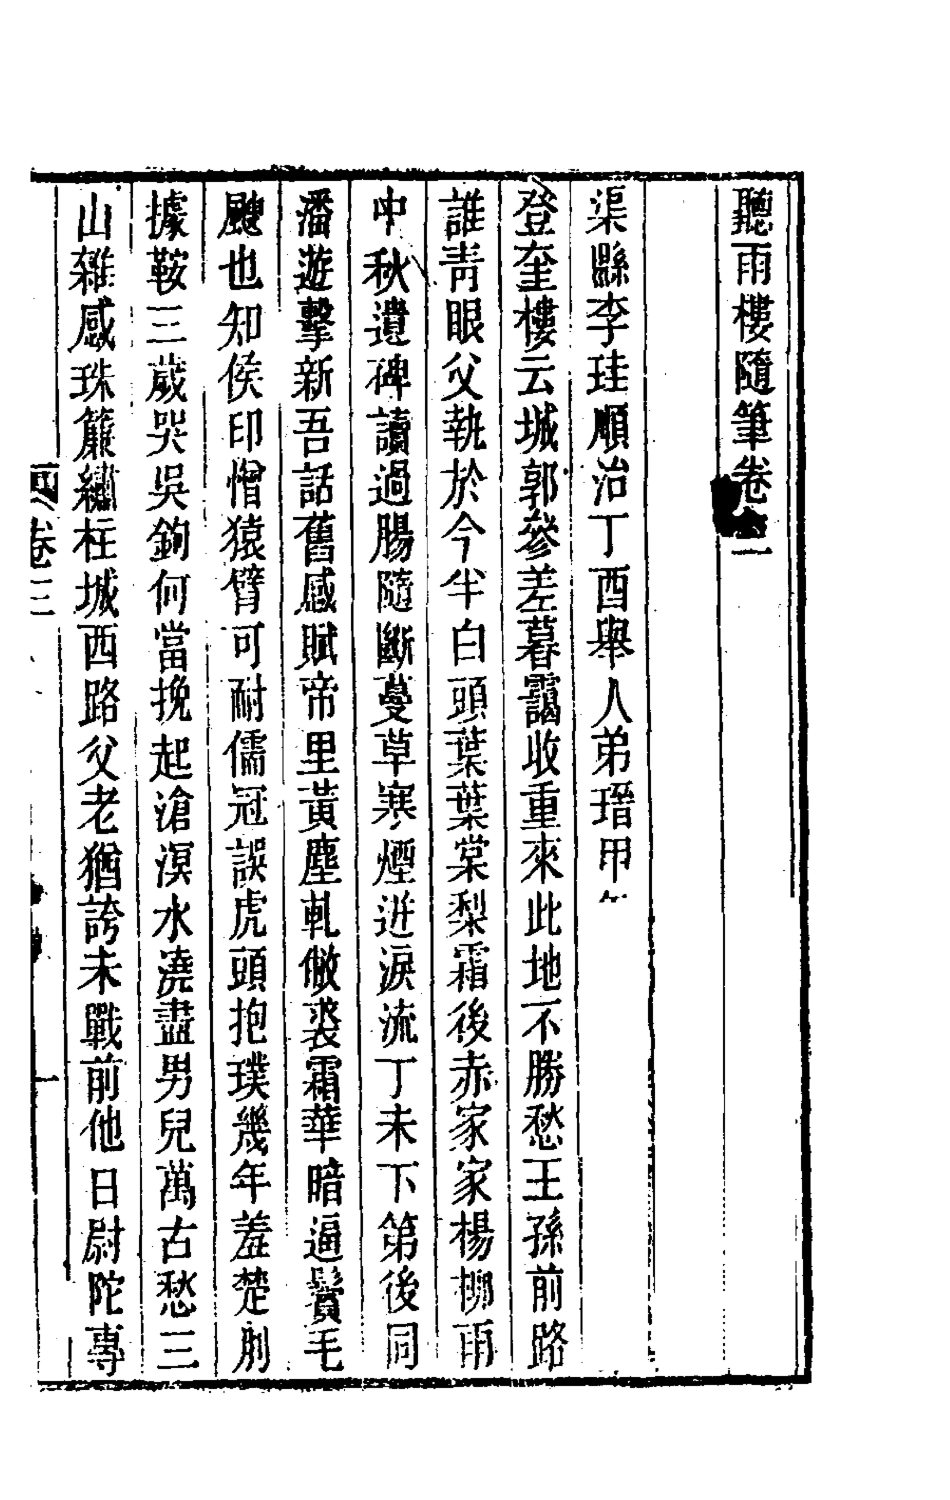 聽雨樓隨筆卷三
渠縣李珪順治丁酉舉人弟瑨甲午
登奎樓云城郭參差暮靄收重來此地不勝愁王孫前路
誰青眼父執於今半白頭葉葉棠梨霜後赤家家楊柳雨
中秋遺碑讀過腸隨斷蔓草寒煙迸淚流丁未下第後同
潘遊擊新吾話舊感賦帝里黃塵軋敝裘霜華暗逼鬢毛
颼也知侯印憎猿臂可耐儒冠誤虎頭抱璞幾年羞楚刖
據鞍三歲哭吳鉤何當挽起滄溟水澆盡男兒萬古愁三
山雜感珠簾繡柱城西路父老猶誇未戰前他日尉陀專
卷三
一